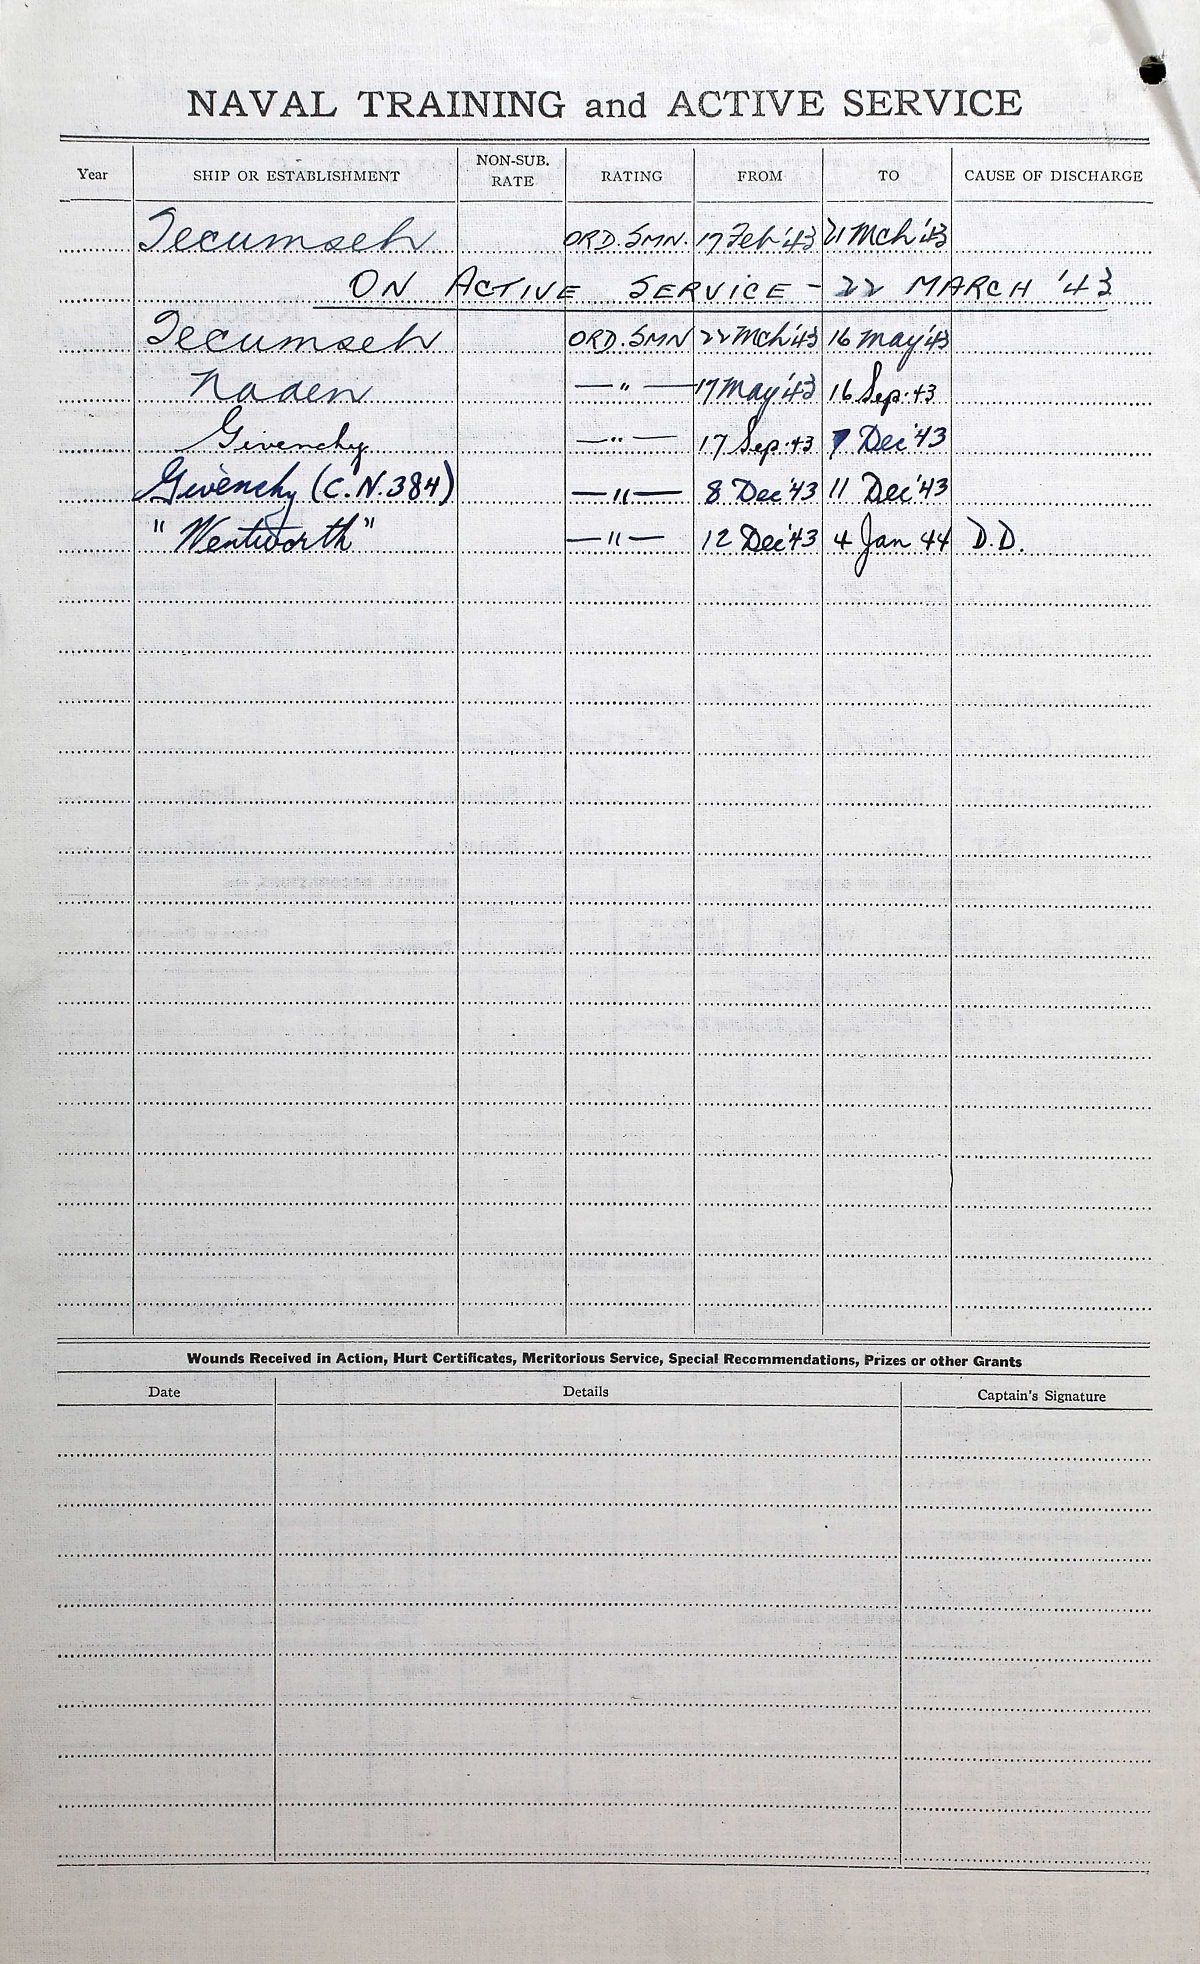 NAVAL TRAINING and ACTIVE SERVICE
Year SHIP OR ESTABLISHMENT NON-SUB. RATE RATING FROM TO CAUSE OF DISCHARGE
Tecumseh ORD. SMN. 17 Feb '43 21 Mch '43
ON ACTIVE SERVICE - 22 MARCH '43
Tecumseh ORD. SMN 22 Mch '43 16 May '43
Naden — " — 17 May '43 16 Sep. 43
Givenchy — " — 17 Sep. 43 7 Dec '43
Givenchy (C.N. 384) — " — 8 Dec '43 11 Dec '43
"Wentworth" — " — 12 Dec '43 4 Jan 44 D.D.
Wounds Received in Action, Hurt Certificates, Meritorious Service, Special Recommendations, Prizes or other Grants
Date Details Captain's Signature